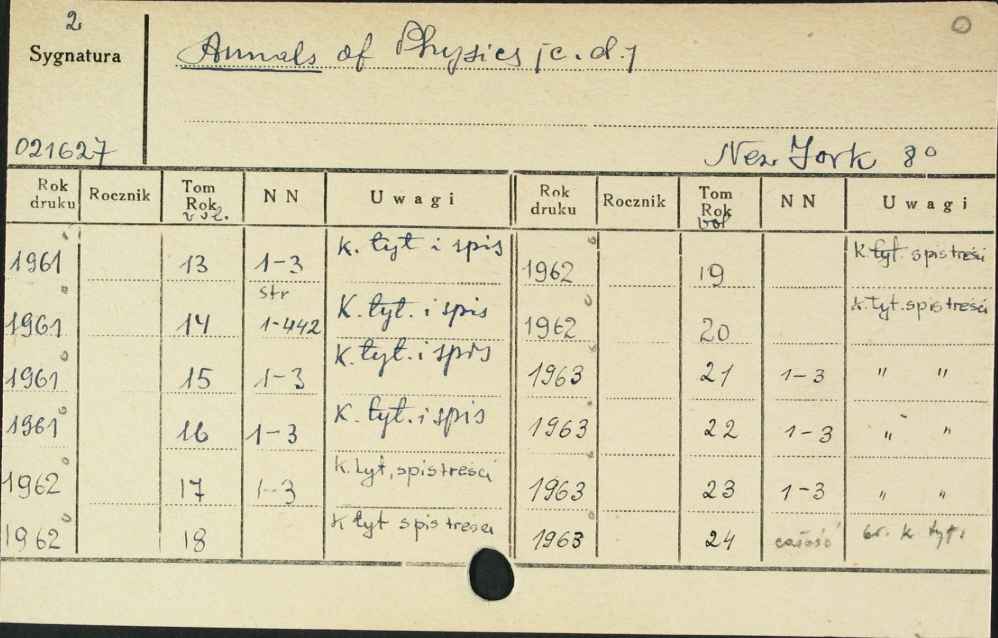 2
Sygnatura
Annals of Physics /c.d./
021627
New York 8°
Rok druku Rocznik Tom Rok vol. NN Uwagi Rok druku Rocznik Tom Rok vol NN Uwagi
1961 13 1-3 K. tyt i spis 1962 19 K. tyt. spis treści
1961 14 str 1-442 K. tyt. i spis 1962 20 K. tyt. spis treści
1961 15 1-3 K. tyt. i spis 1963 21 1-3 " "
1961 16 1-3 K. tyt. i spis 1963 22 1-3 " "
1962 17 1-3 K. tyt, spis treści 1963 23 1-3 " "
1962 18 K tyt spis treści 1963 24 całość br. k tyt.